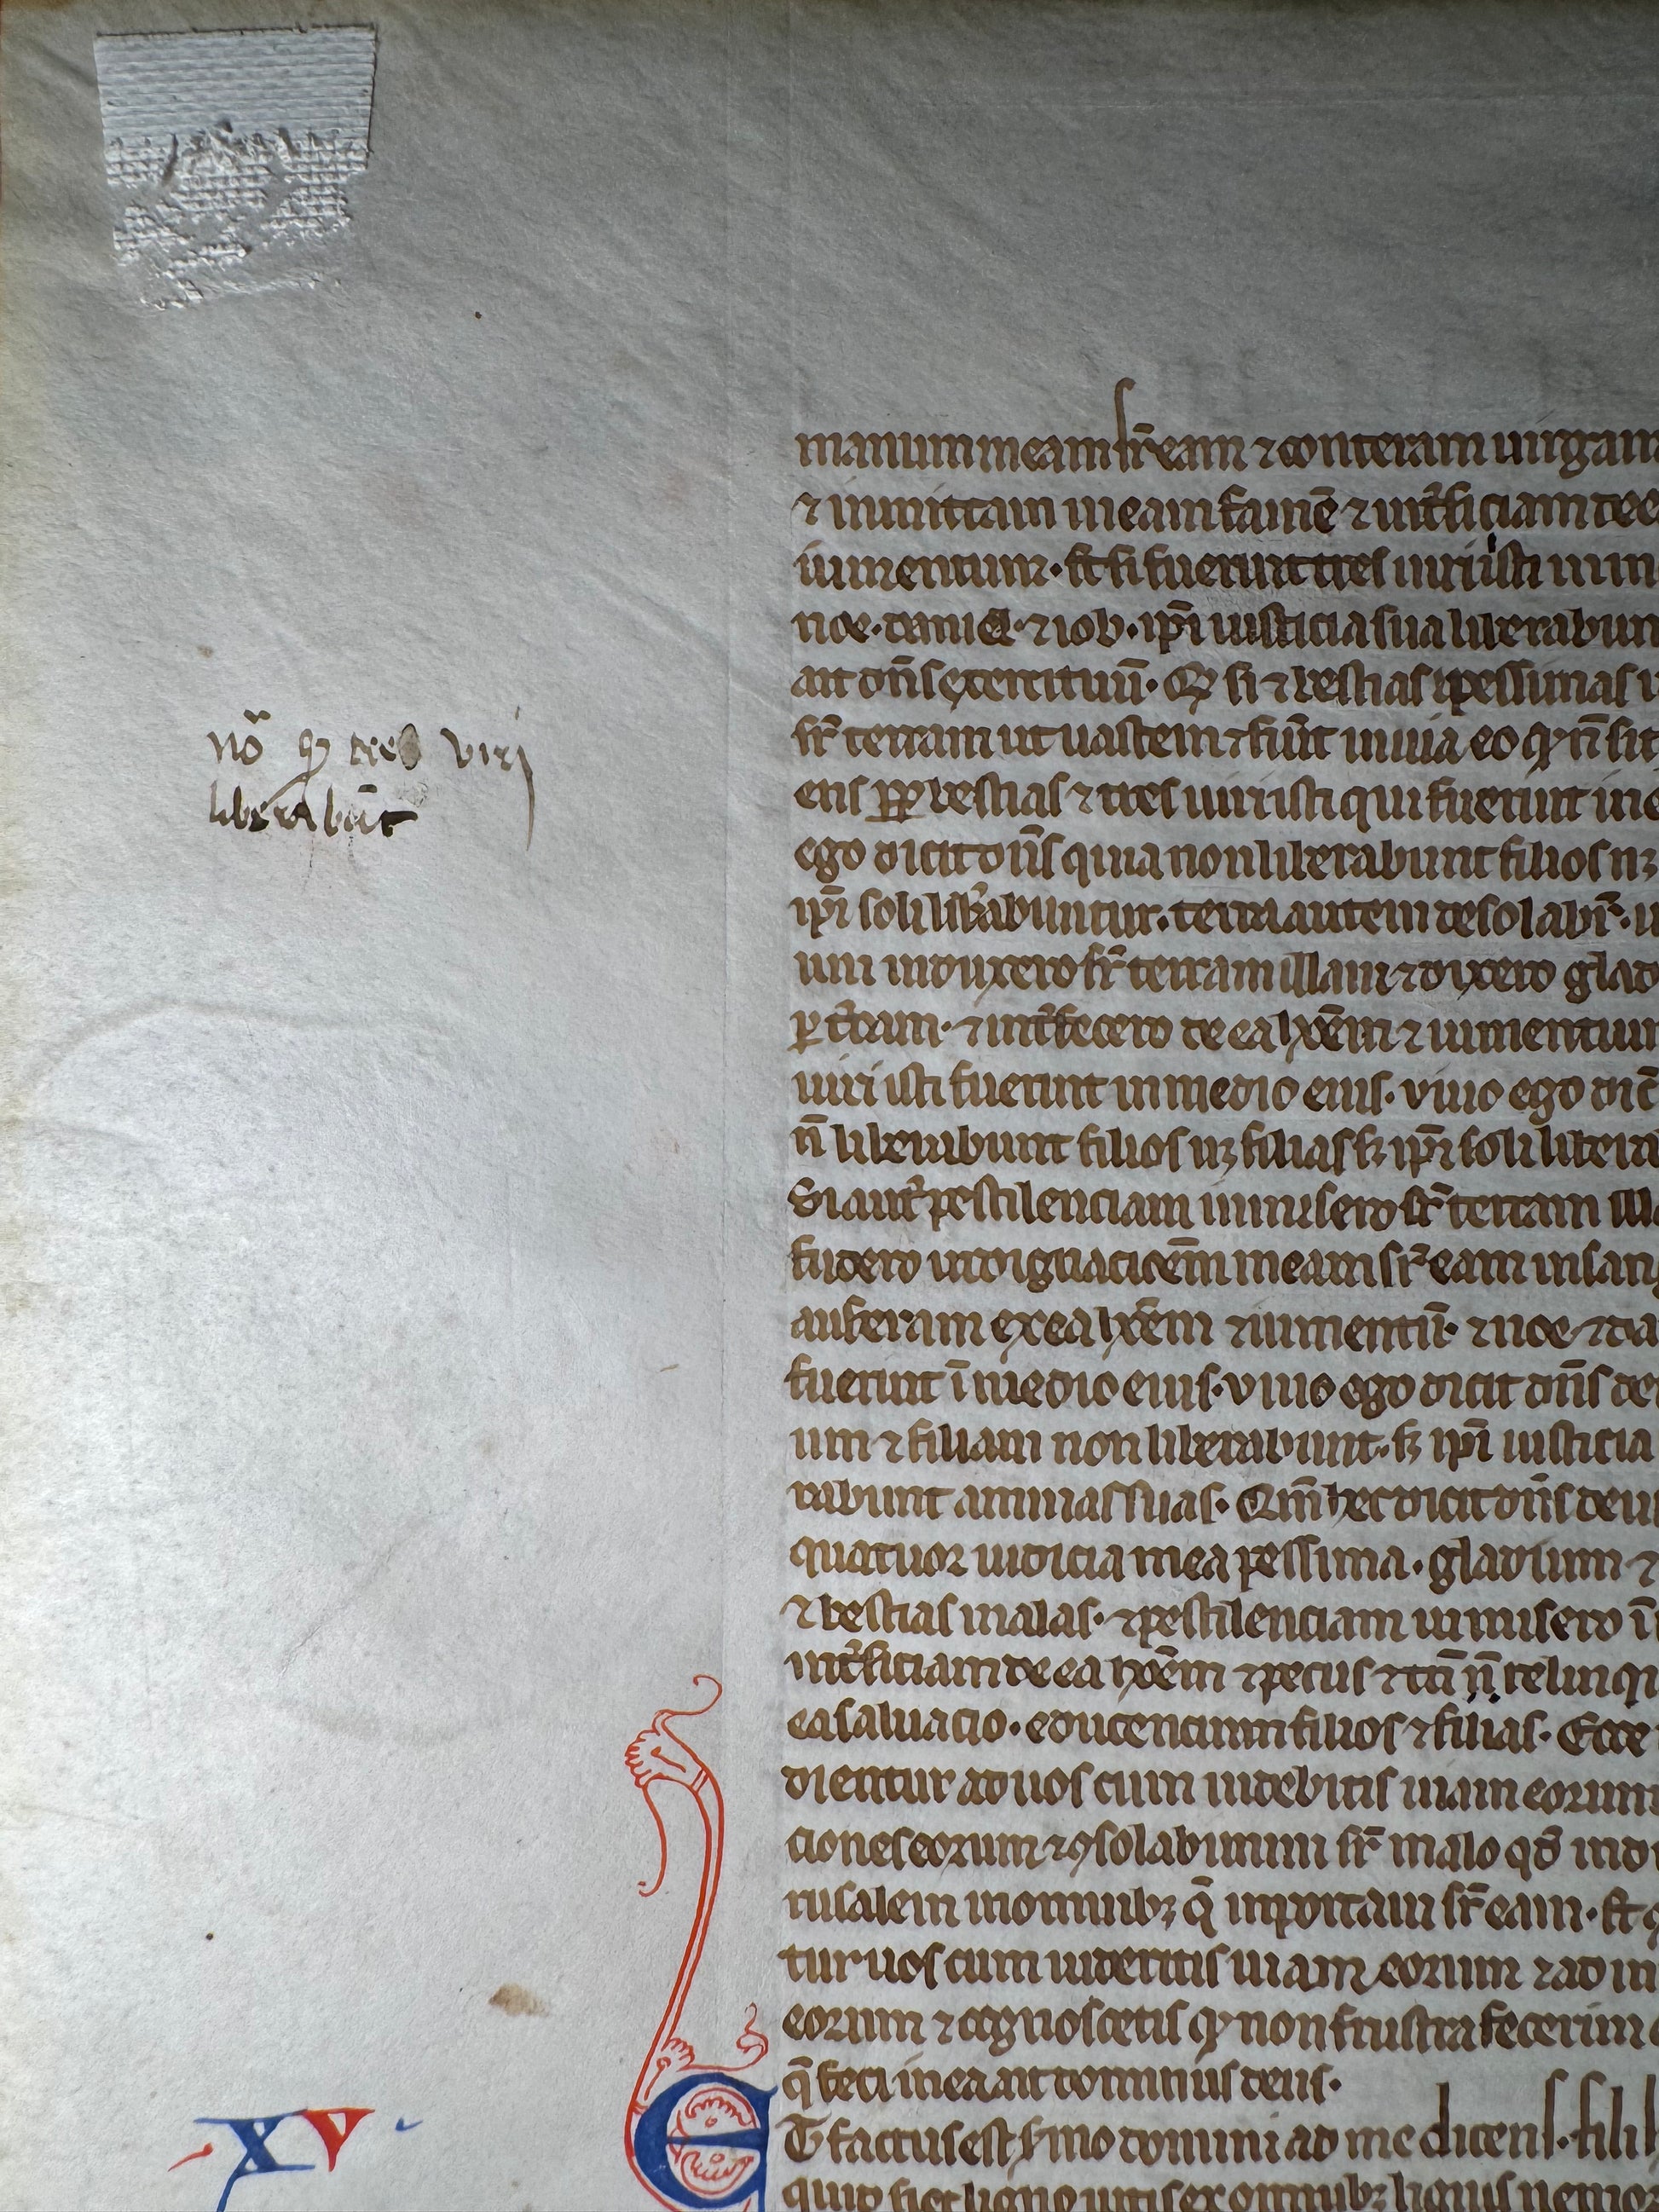 manum meam sr̄ eam ⁊ conteram uirgam
⁊ inmittam in eam famē ⁊ int̓ficiam de e
iumentum· Et si fuerint tres uiri isti in m
noe· daniel· ⁊ iob· ip̄i iusticia sua liberabun
ait dn̄s exercituū· Qꝫ si ⁊ bestias pessimas
nō qꝫ tres viri
liberabūt
sr̄ terram ut uastem ⁊ fiūt inuia eo qꝫ n̄ sit
ens ꝓpt bestias ⁊ tres uiri isti qui fuerint in e
ego dicit dn̄s quia non liberabunt filios nꝫ
ip̄i soli lib̓abuntur· terra autem desolabr̄·
um induxero sr̄ terram illam ⁊ dixero glad
ꝑ t̓ram· ⁊ int̓fecero de ea hoēm ⁊ iumentum
uiri isti fuerint in medio eius· viuo ego dic̄
n̄ liberabunt filios nꝫ filias sꝫ ip̄i soli libera
Si aut̓ pestilenciam inmisero sr̄ terram illa
fudero indignacioēm meam sr̄ eam in san
auferam ex ea hoēm ⁊ iumentū· ⁊ noe ⁊ da
fuerint ī medio eius· viuo ego dicit dn̄s de
um ⁊ filiam non liberabunt· sꝫ ip̄i iusticia
rabunt animas suas· Qm̄ hec dicit dn̄s deu
quatuor iudicia mea pessima· gladium ⁊
⁊ bestias malas· ⁊ pestilenciam inmisero ī
int̓ficiam de ea hoēm ⁊ pecus ⁊ tn̄ n̄ relinq
ea saluacio· educencium filios ⁊ filias· Ecce
dientur ad uos cum uidebitis uiam eorum
ciones eorum ⁊ ꝯsolabimini sr̄ malo qd̄ ind
rusalem in omnibꝫ q̄ inportaui sr̄ eam· Et
tur uos cum uideritis uiam eorum ⁊ ad in
eorum ⁊ cognoscetis qꝫ non frustra fecerim
q̄ feci in ea ait dominus deus·
XV
ET factus est s̓mo domini ad me dicens· fili
quid fiet ligno uitis ex omnibꝫ lignis nemor